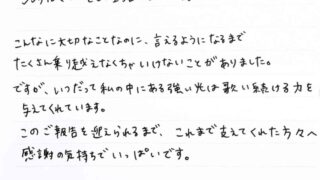 こんなに大切なことなのに、言えるようになるまで
たくさん乗り越えなくちゃいけないことがありました。
ですが、いつだって私の中にある強い光は歌い続ける力を
与えてくれています。
このご報告を迎えられるまで、これまで支えてくれた方々へ
感謝の気持ちでいっぱいです。